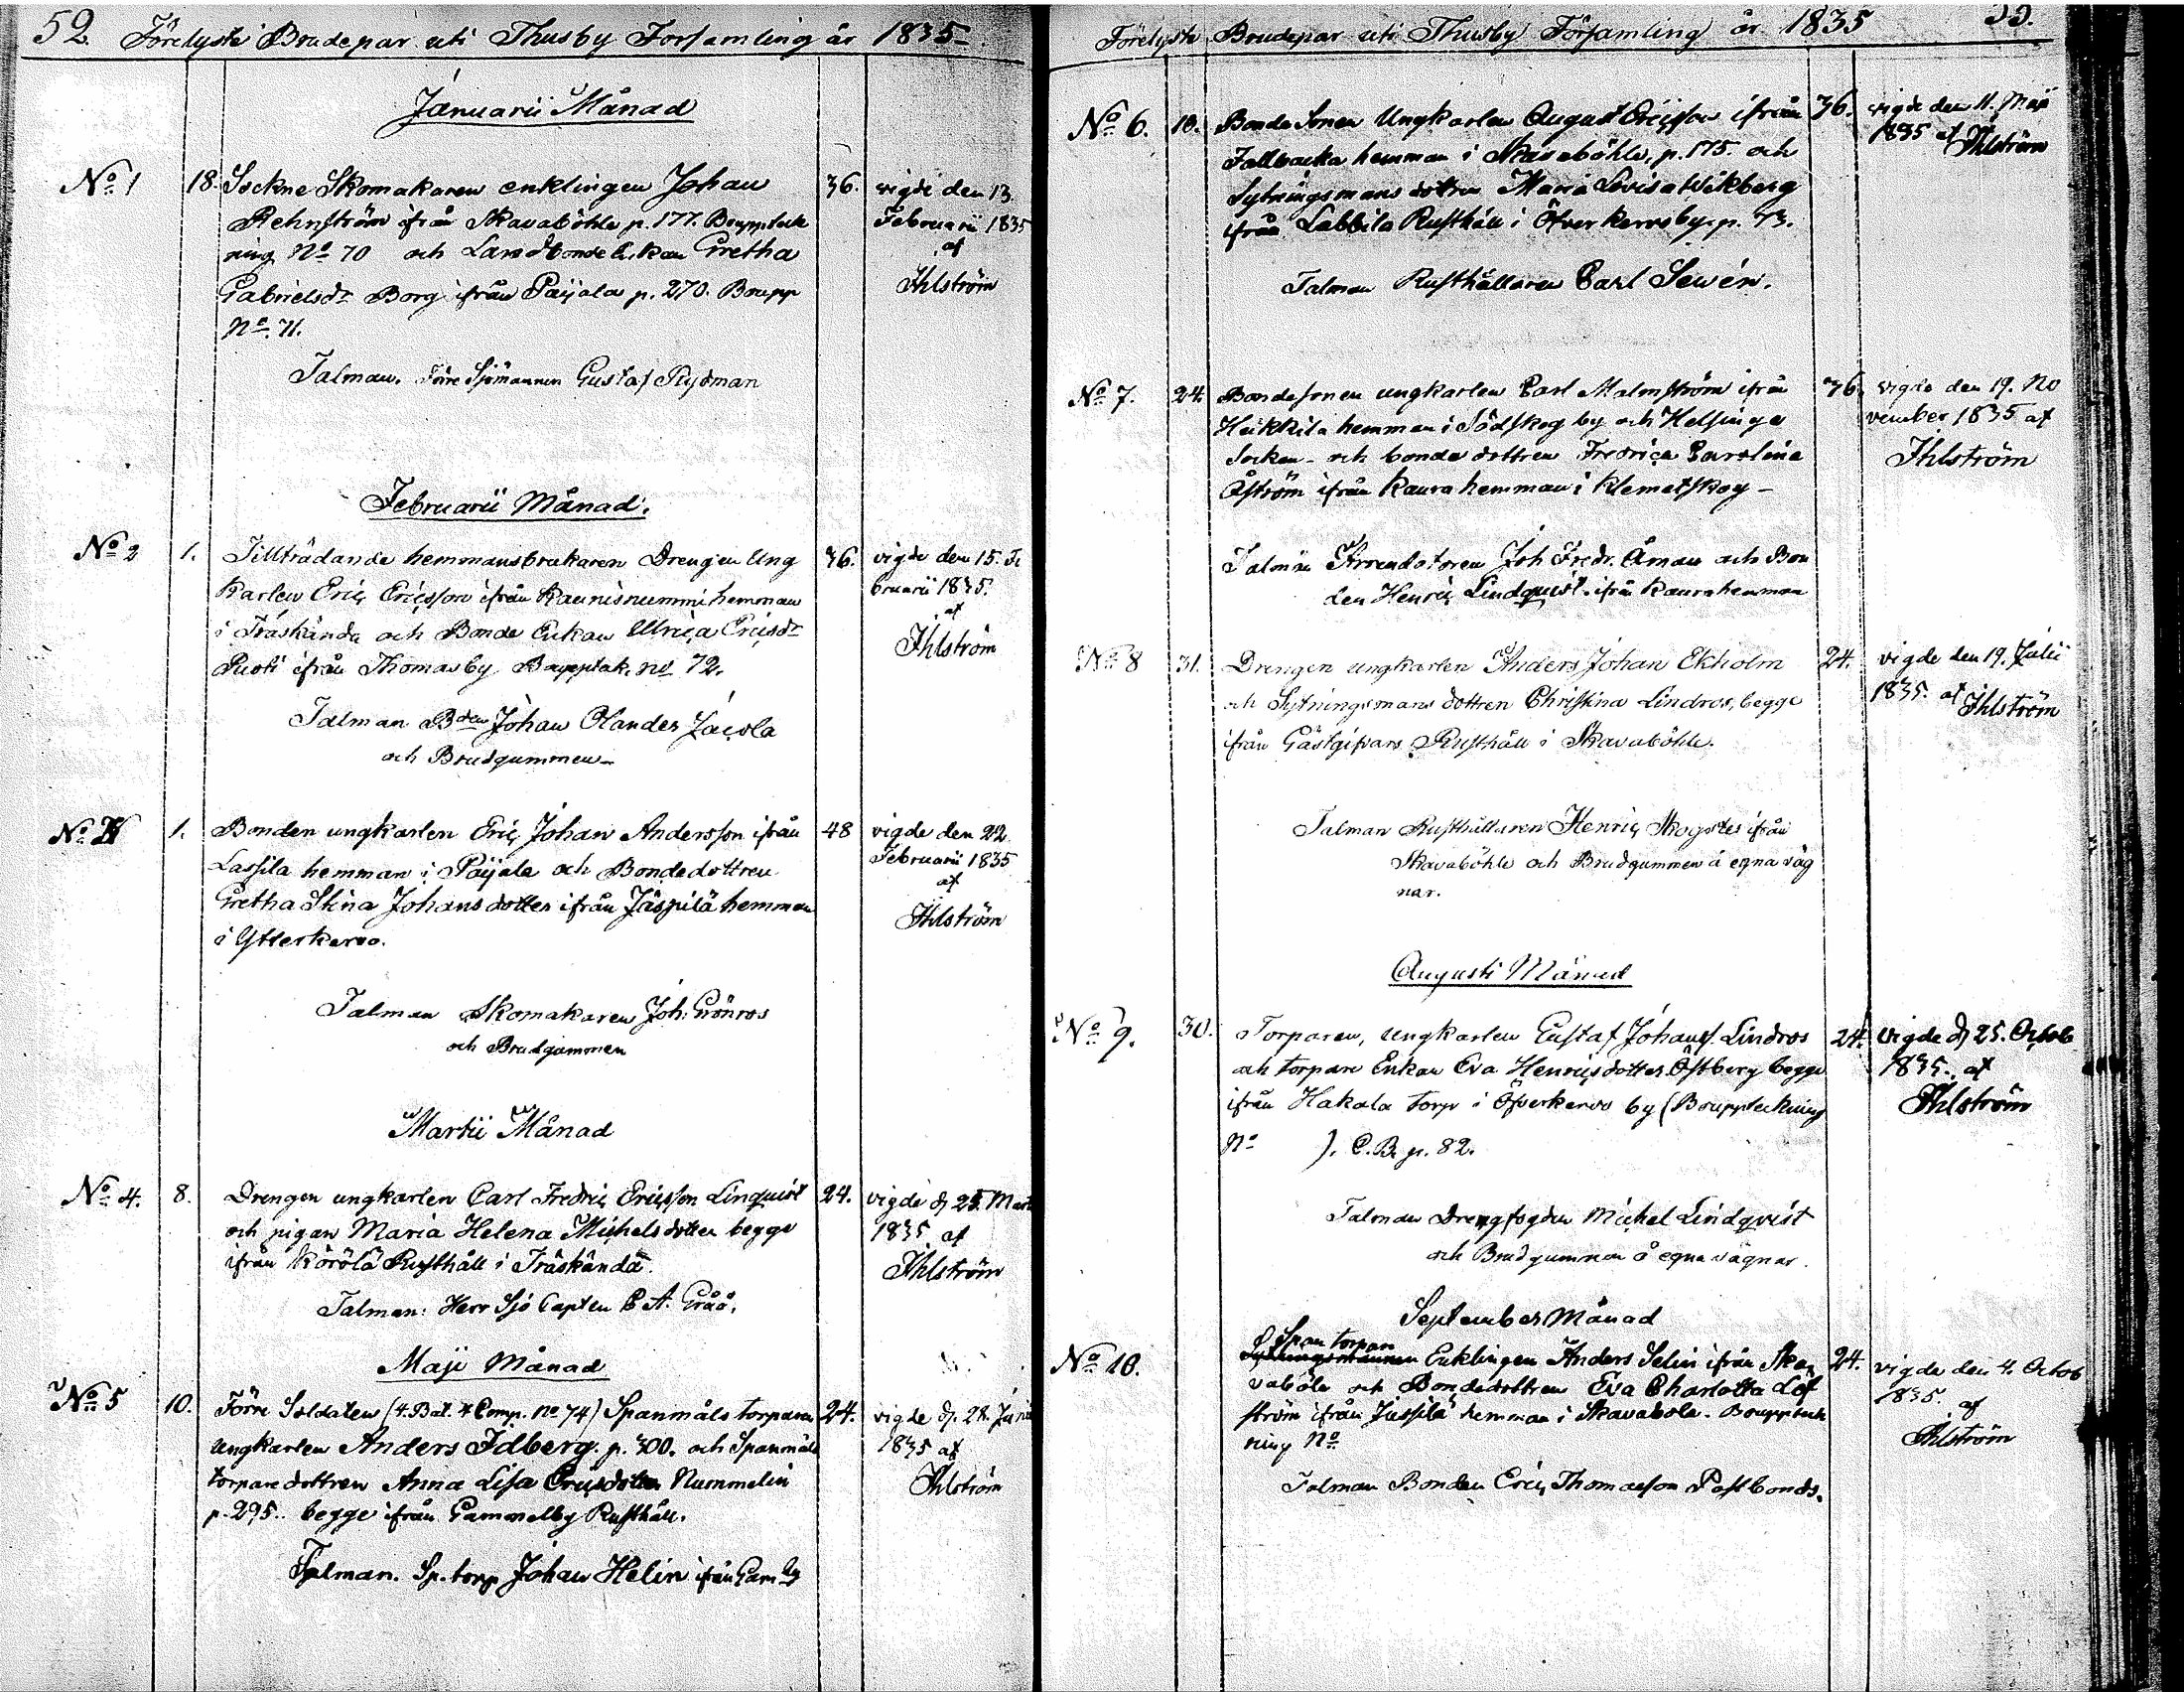 52. Förelyste Brudepar uti Thusby Forsamling år 1835
Januarii Månad
No 1 18. Sockne Skomakaren enklingen Johan 36. vigde den 13.
Rehnström ifrån Skavaböhle p. 177. Bouppteck Februarii 1835
ning No 70 och Landbonde Gretha af
Gabrielsdr Borg ifrån Paijala p. 270. Boupp Ihlström
No 71.
Talman. Förre Sjömannen Gustaf Rydman
Februarii Månad.
No 2 1. Tillträdande hemmansbrukaren Drengen Ung 36. vigde den 15. Fe
karlen Eric Ericsson ifrån Kaunisnummi hemman bruarii 1835.
i Träskända och Bonde Enkan Ulrica Ericsdr af
ifrån Thomasby Bouppták. no 72. Ihlström
Talman Bden Johan Olander Jäcola
och Brudgummen
No 1. Bonden ungkarlen Eric Johan Andersson ifrån 48 vigde den 22.
Lassila hemman i Paijala och Bondedottren Februarii 1835
Gretha Stina Johansdotter ifrån Jäspilä hemman af
i Ytterkervo. Ihlström
Talman Skomakaren Joh: Grönros
och Brudgummen
Martii Månad
No 4. 8. Drengen ungkarlen Carl Fredric Ericsson Linquist 24. vigde d. 25. Mart
och pigan Maria Helena Michelsdotter begge 1835. af
ifrån Körölä Rusthåll i Träskända. Ihlström
Talman: Herr Sjö Capten C A. Gråå.
Maji Månad
No 5 10. Förre Soldaten (4. Bat. 4 Comp. No 74) Spanmåls torparen 24. vigde d. 28. Junii
ungkarlen Anders Idberg. p. 300. och Spanmåls 1835 af
torpare dottren Anna Lisa Ericsdotter Nummelin Ihlström
p. 295. begge ifrån Gammelby Rusthåll.
Talman. Sp. torp Johan Helin ifrån Gam by
Förelyste Brudepar uti Thusby Församling år 1835 53.
No 6. 10. Bonde Sonen Ungkarlen August Ericsson ifrån 36. vigde den 11. Maji
Tallbacka hemman i Skavaböhle, p. 175. och 1835 af Ihlström
Sytningsmans dottren Maria Lovisa Wikberg
ifrån Labbila Rusthåll i Öfverkervo by. p. 73.
Talman Rusthållaren Carl Sewén.
No 7. 24. Bondesonen ungkarlen Carl Malmström ifrån 36. vigde den 19. No
Heikkila hemman i Södskog by och Helsinge vember 1835 af
Socken - och bonde dottren Fredrica Carolina Ihlström
Åström ifrån Kaura hemman i Klemetskog -
Talmän Arrendatoren Joh Fredr. Åman och Bon
den Henric Lindquist ifrån Kaura hemman
No 8 31. Drengen ungkarlen Anders Johan Ekholm 24. vigde den 19. Julii
och Sytningsmans dottren Christina Lindros, begge 1835. af Ihlström
ifrån Gästgifvars Rusthåll i Skavaböhle.
Talman Rusthållaren Henric Skogster ifrån
Skavaböhle och Brudgummen å egna väg
nar.
Augusti Månad
No 9. 30. Torparen, ungkarlen Gustaf Johanss. Lindros 24. vigde d. 25. Octob
och torpare Enkan Eva Henricsdotter Östberg begge 1835. af
ifrån Hakala torp i Öfverkervo by (Bouppteckning Ihlström
No ). C. B. p. 82.
Talman Drengfogden Michel Lindqvist
och Brudgummen å egna vägnar.
September Månad
Span torpan
No 10. Sytningsmannen Enklingen Anders Selin ifrån Ska 24. vigde den 4. Octob
vaböle och Bondedottren Eva Charlotta Löf 1835. af
ström ifrån Jussila hemman i Skavabole. Boupptech Ihlström
ning No
Talman Bonden Eric Thomasson Postbonds.